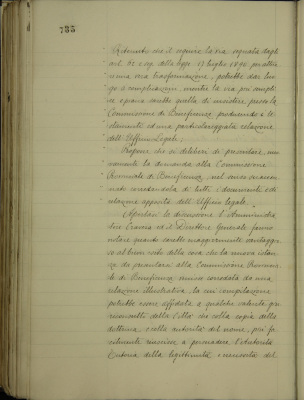 735
Ritenuto che il seguire la via segnata dagli
art. 62 e seg. della legge 17 luglio 1890 per otte
nere una trasformazione, potrebbe dar luo
go a complicazioni mentre la via più sempli
ce e piana sarebbe quella di insistere presso la
Commissione di Beneficenza producendo
ed una particolareggiata relazione
dell'Ufficio Legale.
Propone che si deliberi di presentare nuo
vamente la domanda alla Commissione
Provinciale di Beneficenza nel senso
corredandola di tutti i documenti e di
relazione apposita dell'Ufficio legale.
Apertasi la discussione l'Amministra
tore ed il Direttore Generale fanno
notare quanto sarebbe maggiormente vantaggio
so al buon esito della cosa che la nuova istan
za da presentarsi alla Commissione Provincia
le di Beneficenza venisse corredata da una
relazione illustrativa, la cui compilazione
potrebbe essere affidata a qualche valente giu
reconsulto della Città che colla copia della
dottrina e colla autorità del nome, più fa
cilmente riuscisse a persuadere l'Autorità
tutoria della legittimità e del